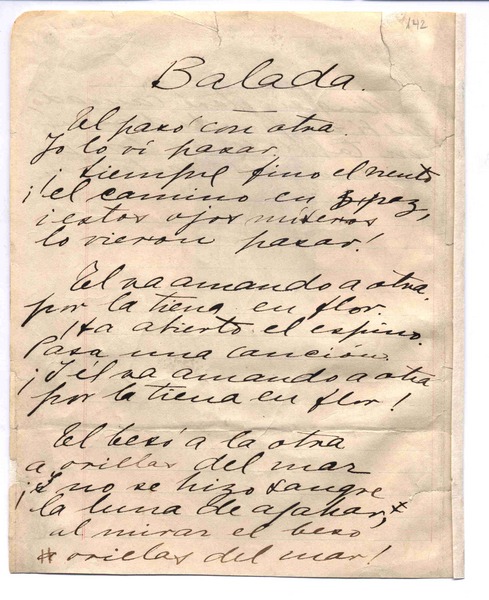 142
Balada.
El pasó con otra.
Yo lo vi pasar,
¡Siempre fino el viento
¡el camino en paz,
i estos ojos míseros
lo vieron pasar!
El va amando a otra,
por la tierra en flor.
¡Ha abierto el espino.
Pasa una canción.
¡I él va amando a otra
por la tierra en flor!
El besó a la otra
a orillas del mar
¡I no se hizo sangre
la luna de azahar,
al mirar el beso
orillas del mar!